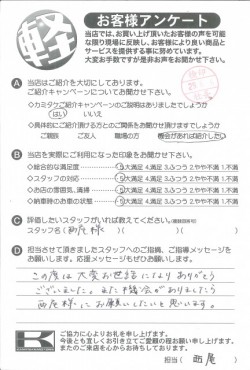 軽
お客様アンケート
当店では、お買い上げ頂いたお客様の声を可能
な限り現場に反映し、お客様により良い商品と
サービスを提供する事に努めています。
大変お手数ですが是非お声をお聞かせ下さい。
A 当店はご紹介を大切にしております。
ご紹介キャンペーンについてお聞かせ下さい。
◇カミタケご紹介キャンペーンのご説明はありましたでしょうか
はい いいえ
◇具体的にご紹介頂ける方とのご関係をお聞かせ頂けますでしょうか
ご親族 ご友人 職場の方 機会があれば紹介したい
B 当店を実際にご利用になった印象をお聞かせ下さい。
◇総合的な満足度 5.大満足 4.満足 3.ふつう 2.やや不満 1.不満
◇スタッフの対応 5.大満足 4.満足 3.ふつう 2.やや不満 1.不満
◇お店の雰囲気、清掃 5.大満足 4.満足 3.ふつう 2.やや不満 1.不満
◇納車時のお車の状態 5.大満足 4.満足 3.ふつう 2.やや不満 1.不満
C 評価したいスタッフがいれば教えてください。
スタッフ名( 西尾様 )( )( )
D 担当させて頂きましたスタッフへのご指摘、ご指導メッセージを
お願いします。応援メッセージもぜひお願いします。
この度は大変お世話になり ありがとう
ございました。また機会がありましたら
西尾様にお願いしたいと思います。
K
ご協力に心よりお礼を申し上げます。
今後とも宜しくお引き立てご愛顧の程お願い申し上げます。
またのご来店を心からお待ちしております。
担当( 西尾 )